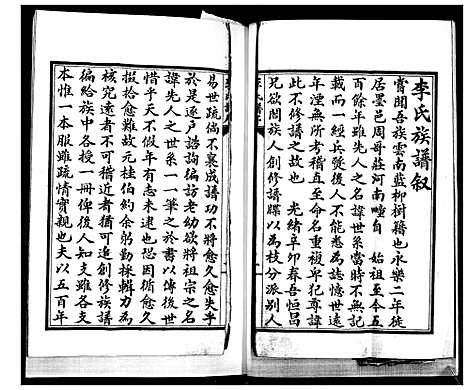 李氏族譜叙
嘗聞吾族雲南藍柳樹籍也永樂二年徙
居墨邑周哥莊河南疃自 始祖至今五
百餘年雖先人之名諱世系當時不忘記
載而一經兵燹後人不能悉為誌憶世遠
年湮無所考稽直至命名重複卑幼尊諱
此不修譜之故也 光緒辛卯春吾恒昌
兄欲閤族人創修譜牒以為枝分派別人
易世疏倘不裒成譜功不將愈久愈失乎
於是逐戶諮詢偏訪老幼欲將世系之名
諱先人之世系一一筆之於書以傳後世
惜乎天不假年有志未逮也恐因循愈久
掇拾愈難故元桂伯約余躬勤採輯力為
核究遠者不可稽近者猶可追創修族譜
徧給族中各授一冊俾後人知支雖各支
本惟一本服雖疏情實親也夫以五百年